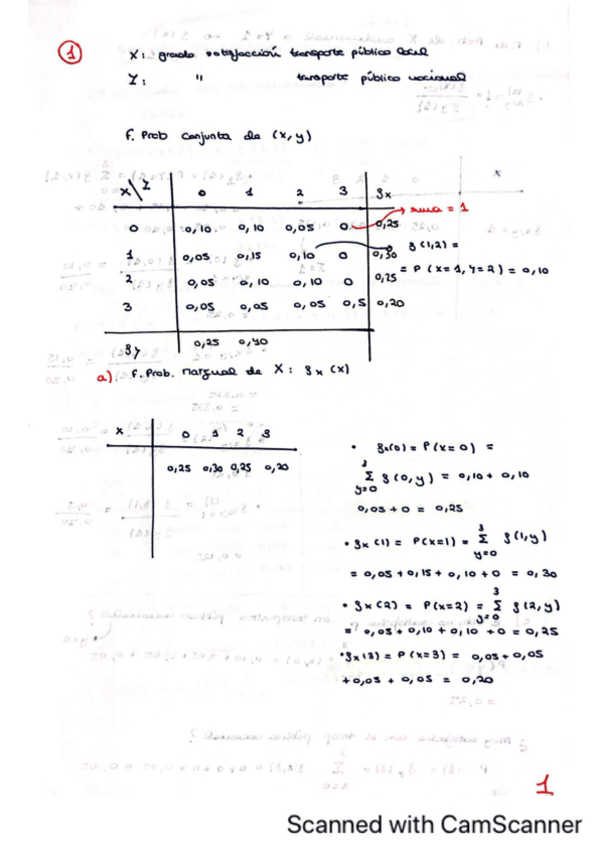 1
X: grado satisfacción transporte público local
Y: " transporte público nacional
f. Prob conjunta de (x, y)
X\Y 0 1 2 3 gx
0 0,10 0,10 0,05 0 0,25 → suma = 1
1 0,05 0,15 0,10 0 0,30 g(1,2) =
2 0,05 0,10 0,10 0 0,25 = P(X=1, Y=2) = 0,10
3 0,05 0,05 0,05 0,5 0,20
gy 0,25 0,40
a) f. Prob. Marginal de X: gx(x)
X 0 1 2 3
0,25 0,30 0,25 0,20
• gx(0) = P(x=0) =
3 Σ y=0 g(0,y) = 0,10 + 0,10
0,05 + 0 = 0,25
• gx(1) = P(x=1) = 3 Σ y=0 g(1,y)
= 0,05 + 0,15 + 0,10 + 0 = 0,30
• gx(2) = P(x=2) = 3 Σ y=0 g(2,y)
= 0,05 + 0,10 + 0,10 + 0 = 0,25
• gx(3) = P(x=3) = 0,05 + 0,05
+0,05 + 0,05 = 0,20
1
Scanned with CamScanner